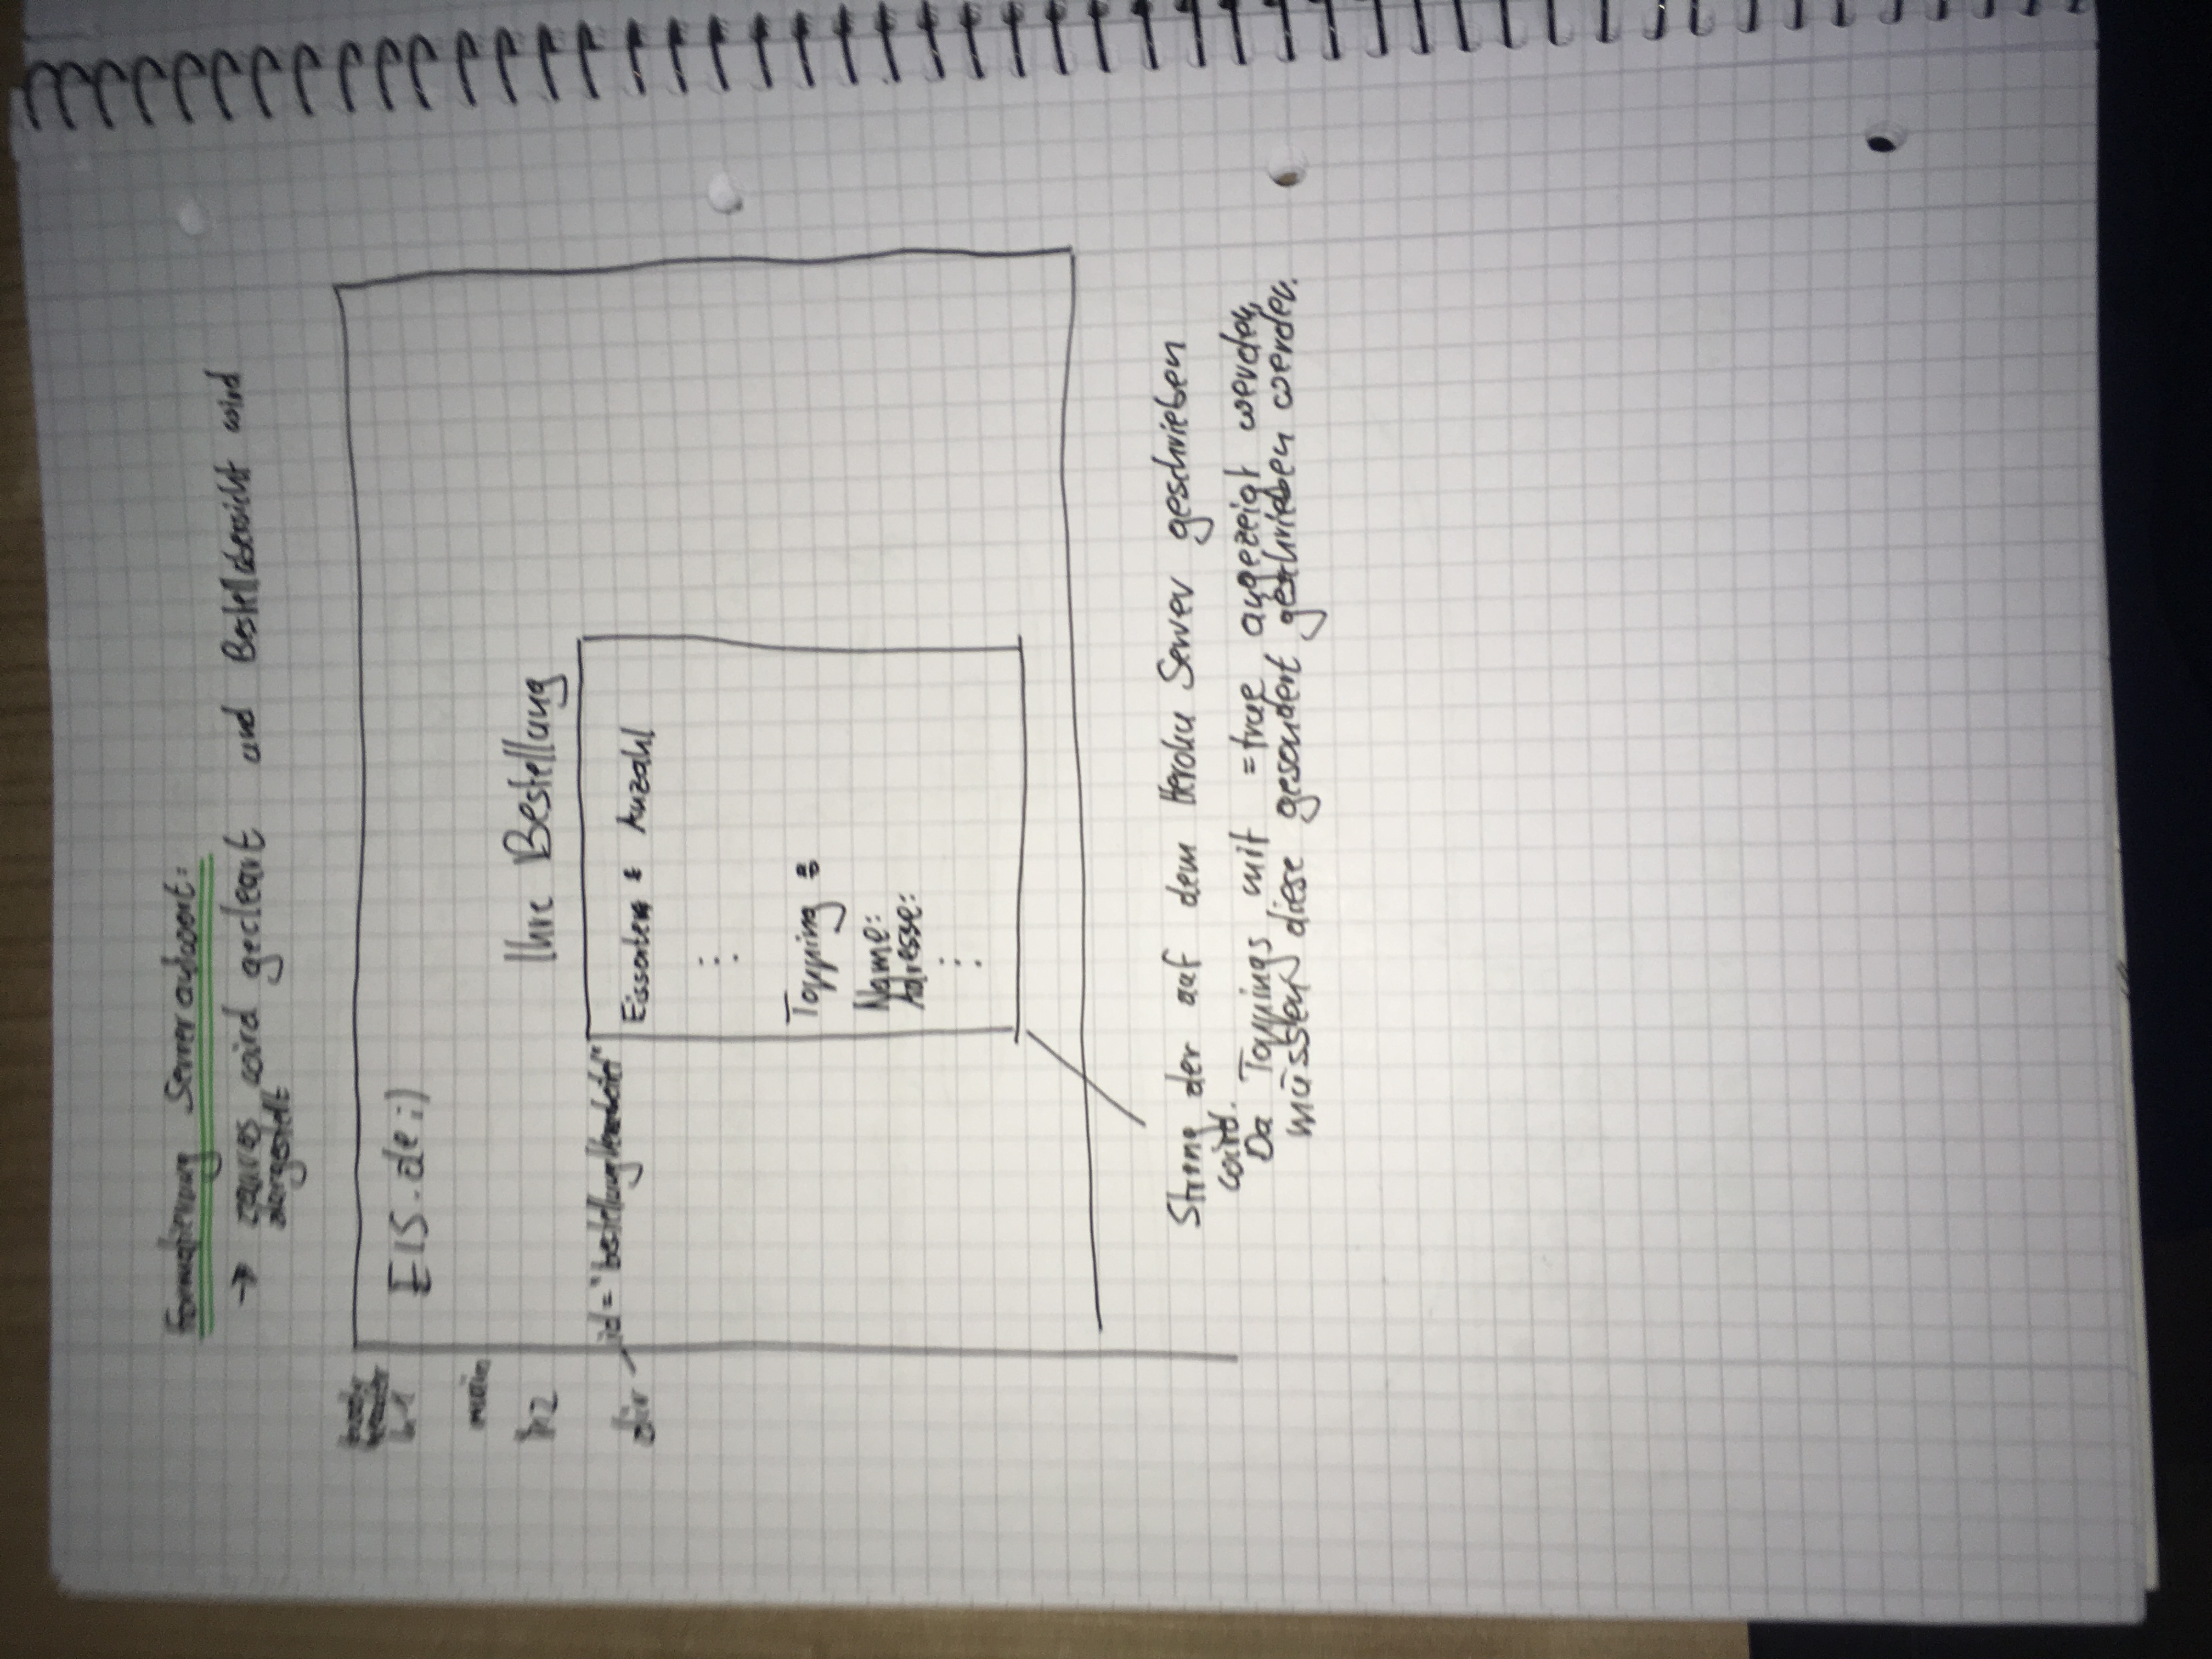 Formatierung Serverantwort:
→ canvas wird gecleart und Bestellübersicht wird
dargestellt
body
header
h1
EIS.de;)
main
h2
Ihre Bestellung
div
id="bestellungVerarbeitet"
Eissorten : Anzahl
⋮
Topping :
Name:
Adresse:
⋮
String der auf dem Heroku Server geschrieben
wird.
Da Toppings mit =true angezeigt werden,
müssen diese gesondert geschrieben werden.